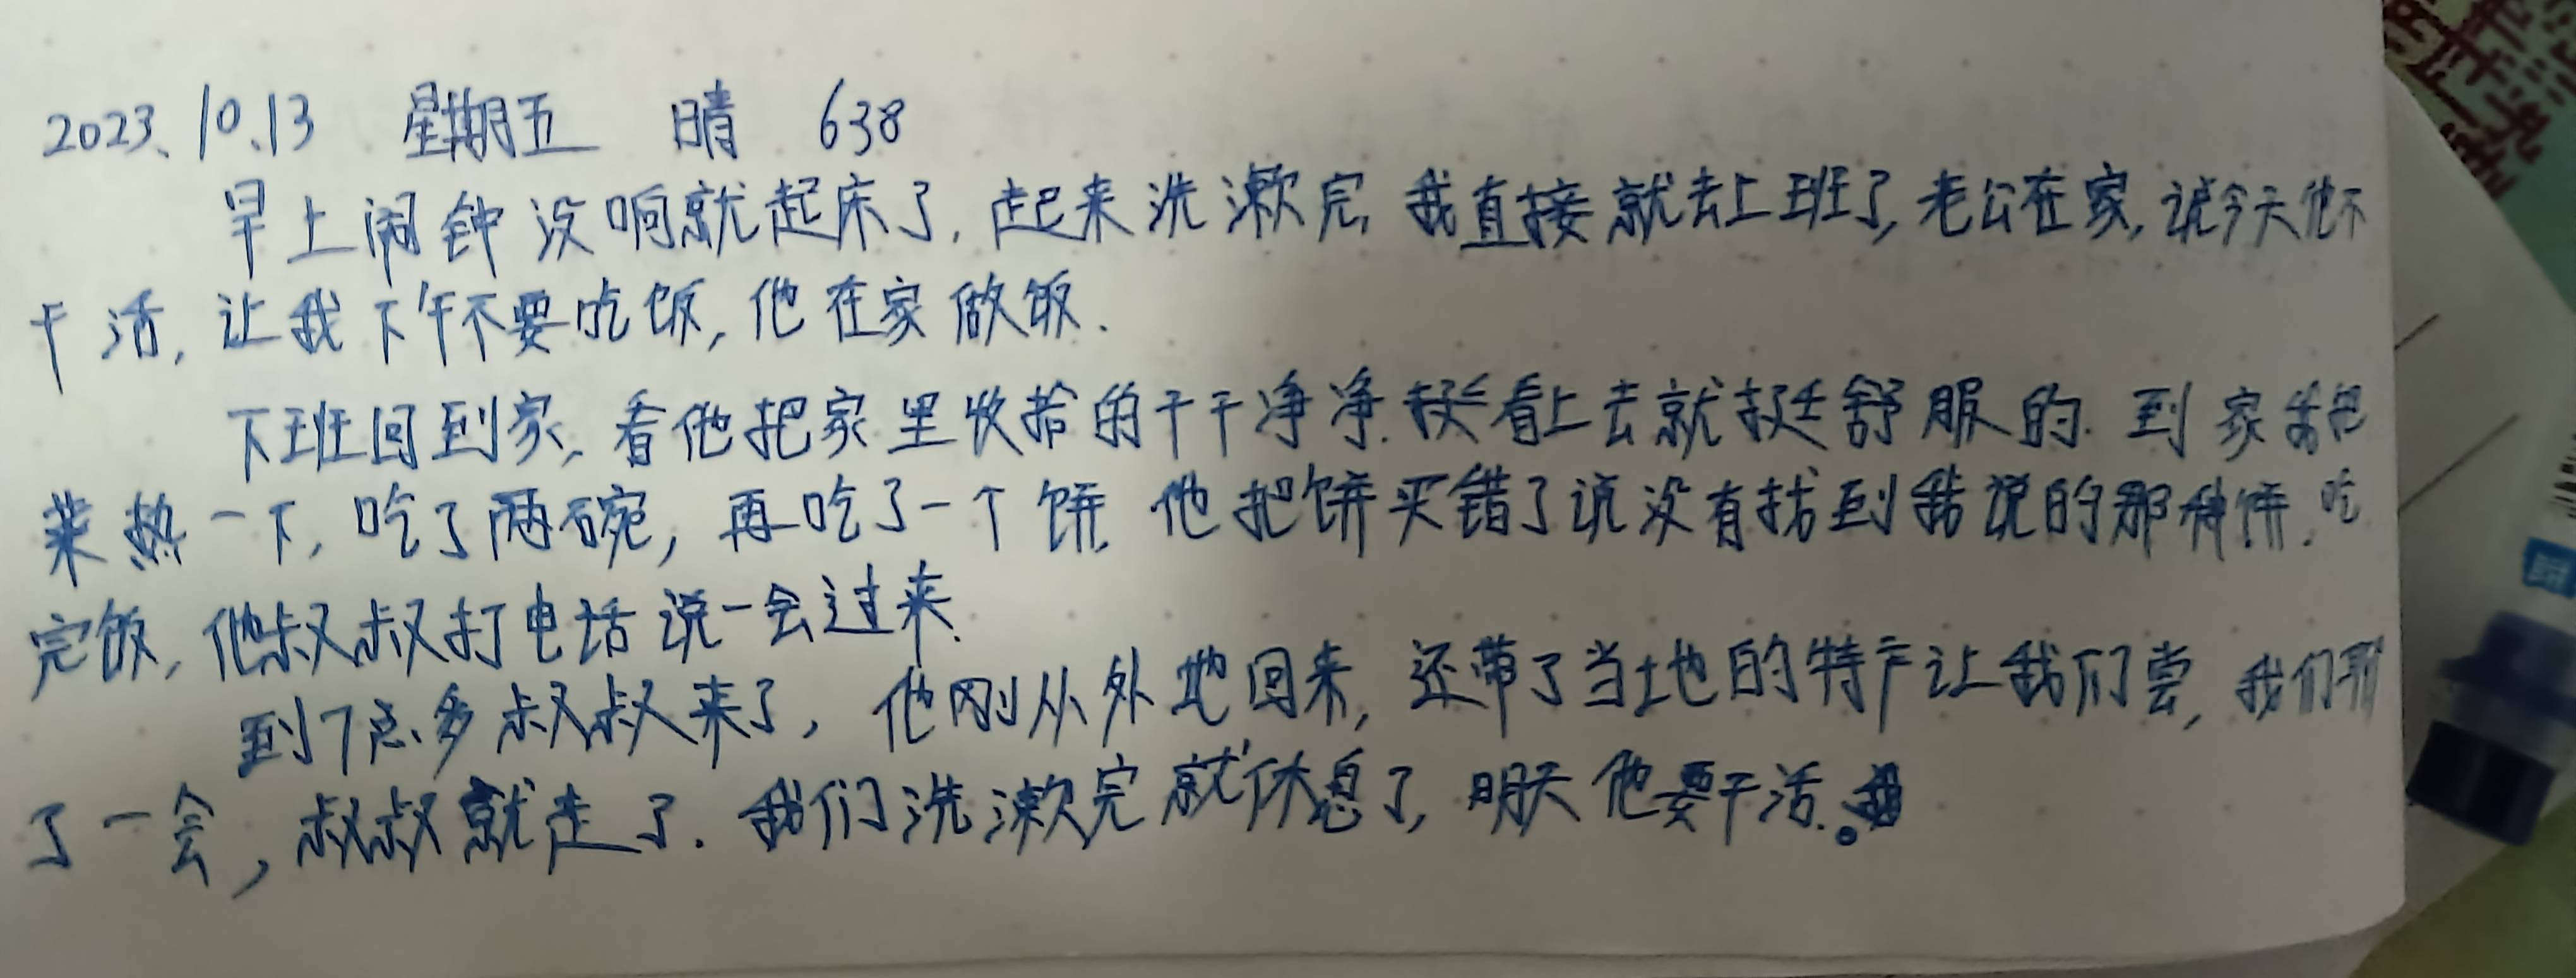 2023、10、13 星期五 晴 638
早上闹钟没响就起床了,起来洗漱完,我直接就去上班了,老公在家,说今天他不
干活,让我下午不要吃饭,他在家做饭.
下班回到家,看他把家里收拾的干干净净.挺看上去就挺舒服的.到家我把
菜热一下,吃了两碗,再吃了一个饼,他把饼买错了说没有找到我说的那种饼.吃
完饭,他叔叔打电话说一会过来.
到7点多叔叔来了,他刚从外地回来,还带了当地的特产让我们尝,我们聊
了一会,叔叔就走了.我们洗漱完就休息了,明天他要干活。